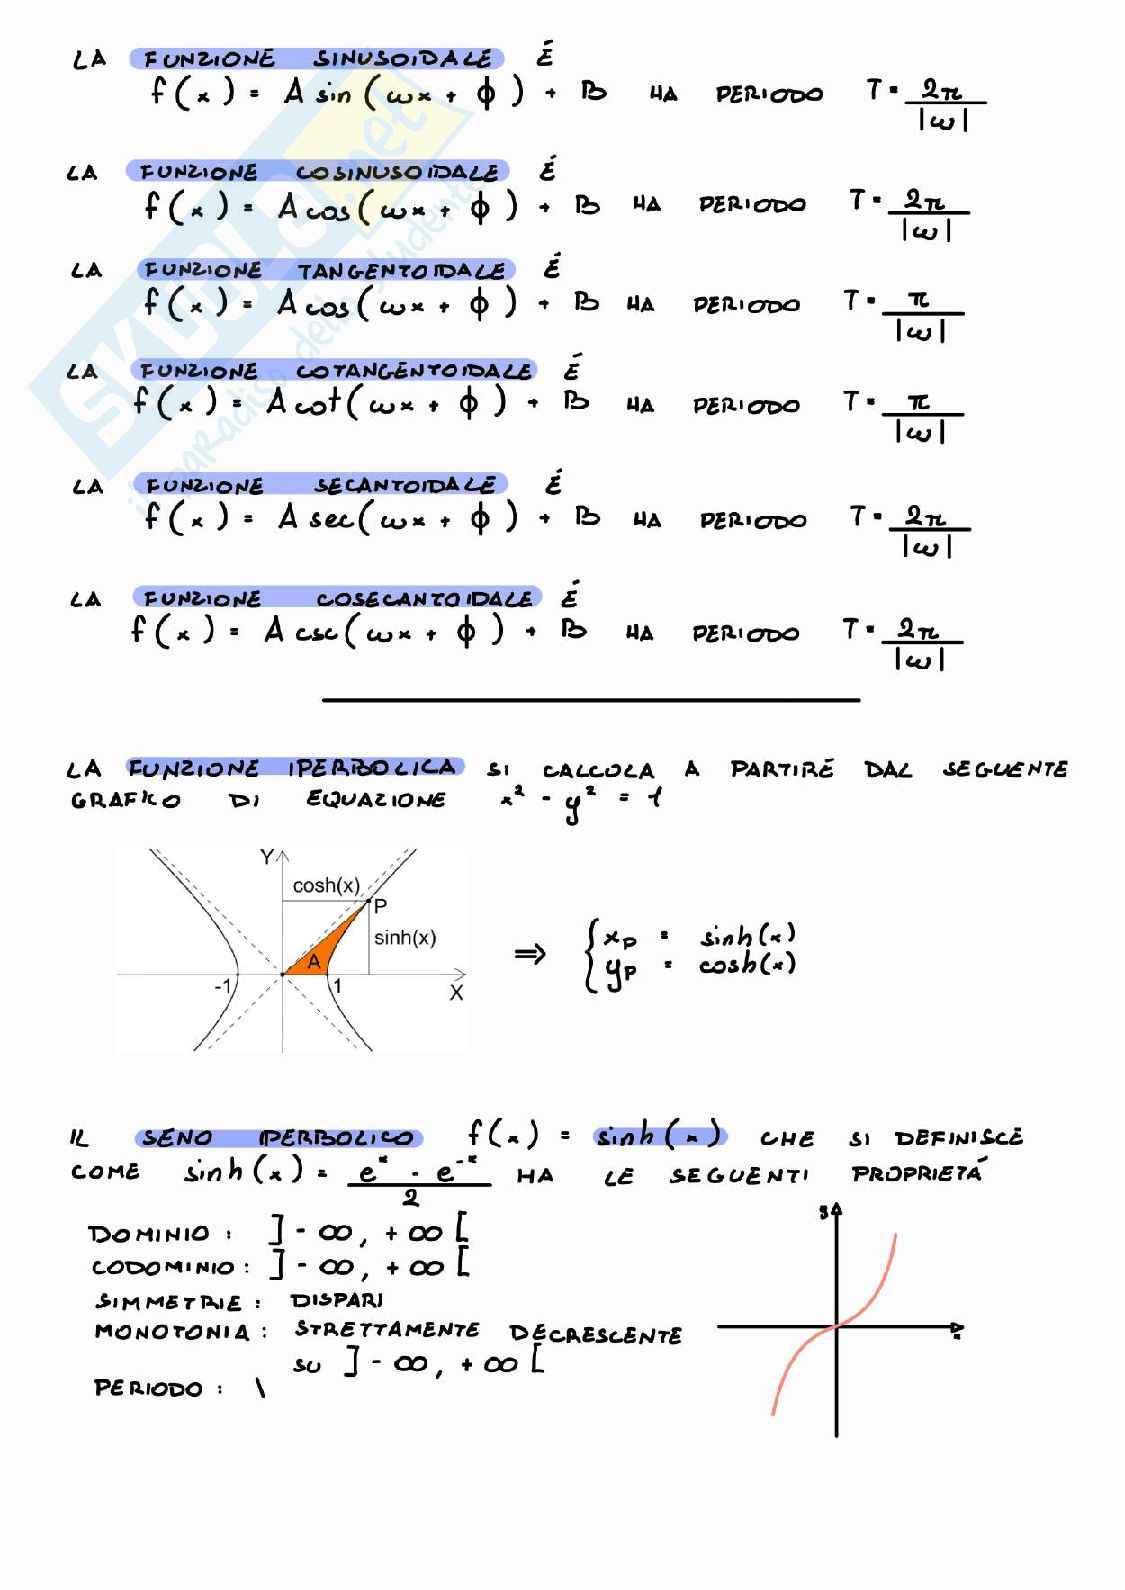 LA FUNZIONE SINUSOIDALE É
f(x) = A sin(ωx + ϕ) + B HA PERIODO T = 2π / |ω|
LA FUNZIONE COSINUSOIDALE É
f(x) = A cos(ωx + ϕ) + B HA PERIODO T = 2π / |ω|
LA FUNZIONE TANGENTOIDALE É
f(x) = A cos(ωx + ϕ) + B HA PERIODO T = π / |ω|
LA FUNZIONE COTANGENTOIDALE É
f(x) = A cot(ωx + ϕ) + B HA PERIODO T = π / |ω|
LA FUNZIONE SECANTOIDALE É
f(x) = A sec(ωx + ϕ) + B HA PERIODO T = 2π / |ω|
LA FUNZIONE COSECANTOIDALE É
f(x) = A csc(ωx + ϕ) + B HA PERIODO T = 2π / |ω|
SKUOLA.net
il paradiso dello studente
LA FUNZIONE IPERBOLICA SI CALCOLA A PARTIRE DAL SEGUENTE
GRAFICO DI EQUAZIONE x² - y² = 1
Y
cosh(x)
P
sinh(x)
A
-1 1
X
⇒ { xP = sinh(x)
yP = cosh(x)
IL SENO IPERBOLICO f(x) = sinh(x) CHE SI DEFINISCE
COME sinh(x) = e^x - e^-x / 2 HA LE SEGUENTI PROPRIETÁ
DOMINIO: ]-∞, +∞[
CODOMINIO: ]-∞, +∞[
SIMMETRIE: DISPARI
MONOTONIA: STRETTAMENTE DECRESCENTE
SU ]-∞, +∞[
PERIODO: \
y
x